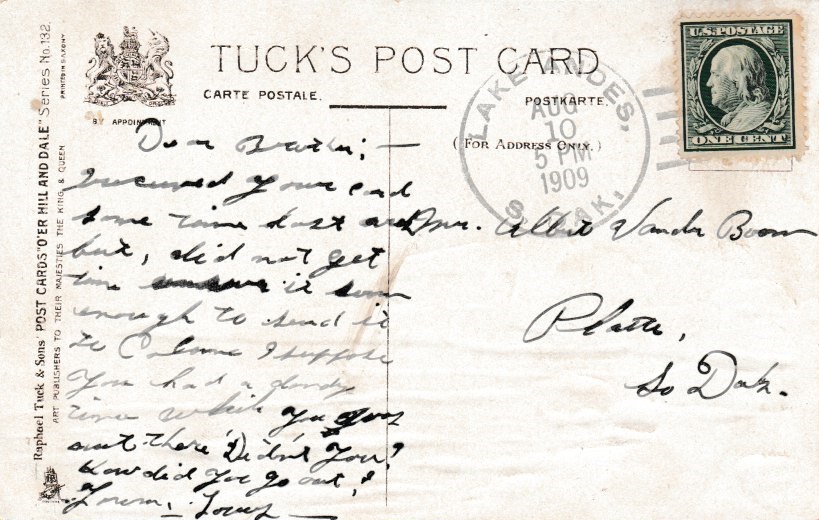 TUCK'S POST CARD
CARTE POSTALE.
POSTKARTE.
(FOR ADDRESS ONLY.)
BY APPOINTMENT
Raphael Tuck & Sons' POST CARDS "O'ER HILL AND DALE" Series No. 132.
ART PUBLISHERS TO THEIR MAJESTIES THE KING & QUEEN
PRINTED IN SAXONY
LAKE ANDES,
AUG
10
5 PM
1909
S. DAK.
U.S. POSTAGE
ONE CENT
Dear Brother; —
Received your card
some time last
but, did not get
time it soon
enough to send it
to I suppose
you had a dandy
time while you
out there Didn't you?
How did you go out?
From,
Mr. Albert Vander Boom
Platte,
So Dak.